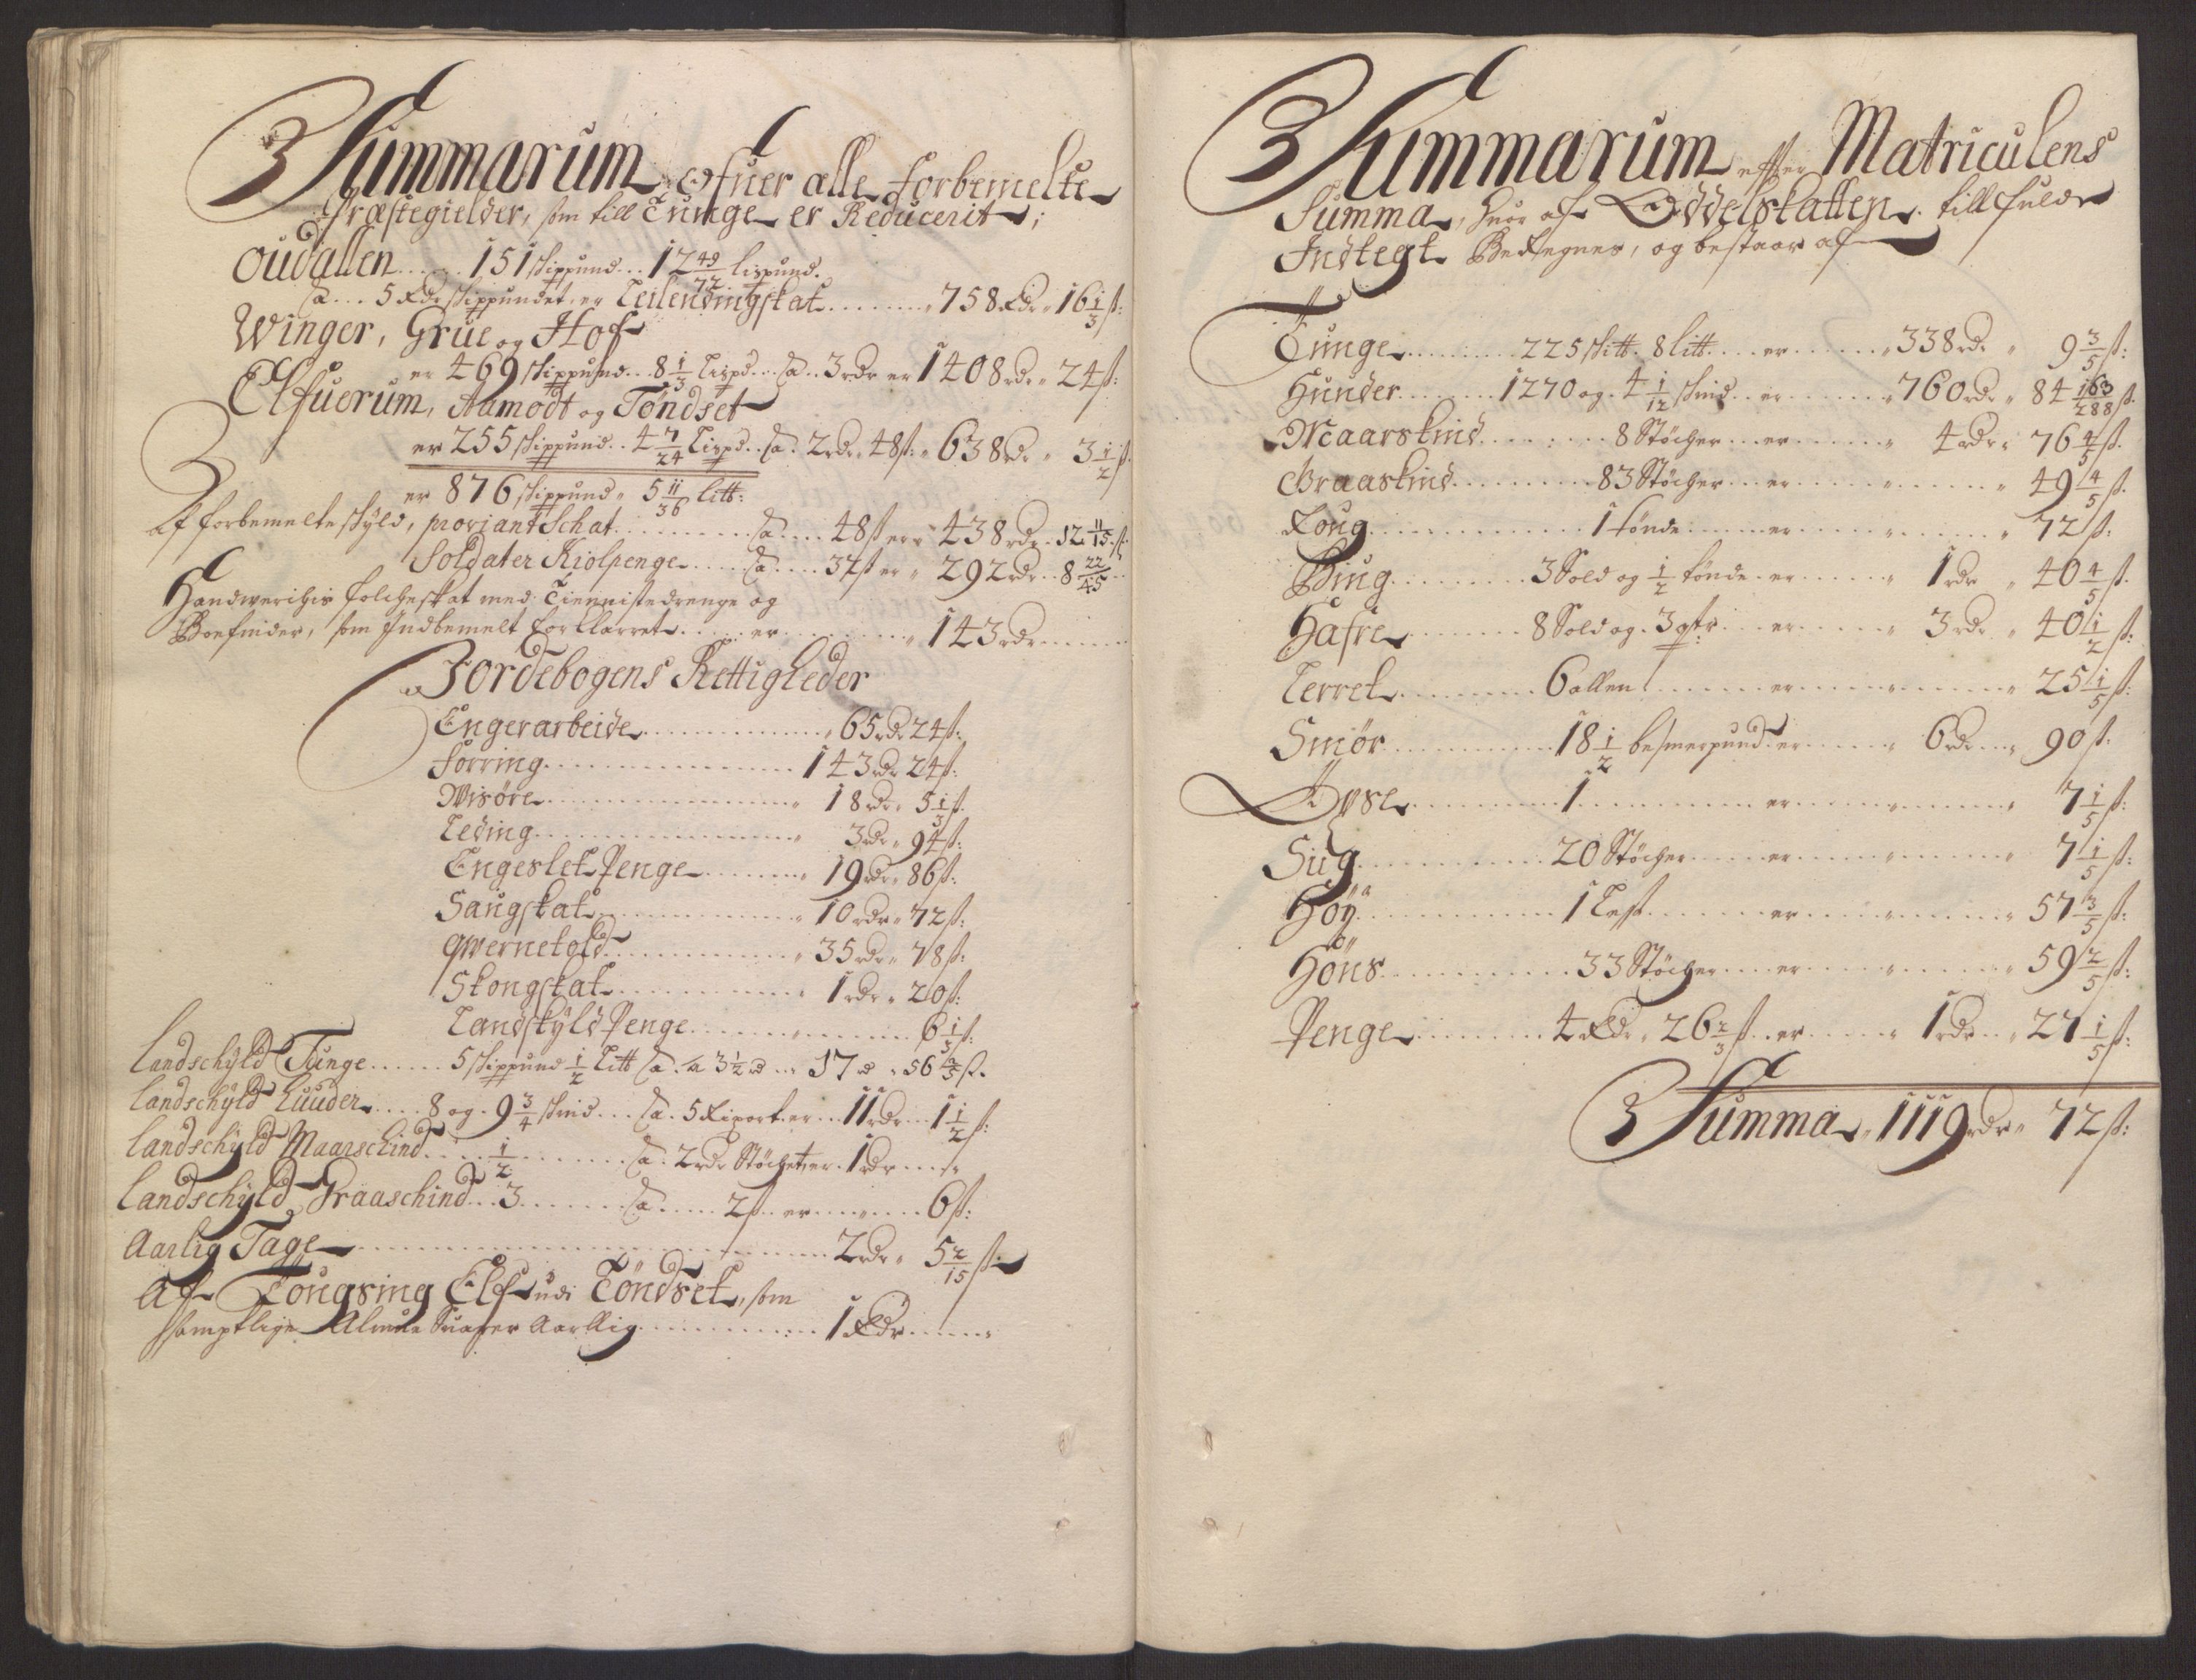 Summarum Ofuer alle forbemelte
Præstegielder, som till Tunge er Reducerit;
Oudallen ..... 151 skippund ... 12 49/72 lispund.
a ... 5 Rdr skippundet, er Leilendingskat ........ 758 Rdr 16 1/3 s:
Winger, Grue og Hof
er 469 skippund .. 8 1/3 Lispd .. a .. 3 rdr er 1408 rdr 24 s:
Elfuerum, Aamodt og Tøndset
er 255 skippund .. 4 7/24 Lispd .. a . 2 rdr 48 s: 638 rdr 3 1/2 s
er 876 skippund 5 11/36 litt:
Af forbemelte skyld, proviant Schat ........ a .... 48 s er 438 rdr 12 11/15 s:
Soldater Kiolpenge ..... a .... 32 s er 292 rdr .. 8 22/45 ..
Handwerchis folcheskat med Tiennistedrenge og
Boesinder, som Indbemelt forklarret ..... er ........ 143 rdr ......
Jordebogens Rettigheder
Engerarbeide ............ 65 rdr 24 s:
Forring ............ 143 rdr 24 s:
Wisøre ............ 18 rdr 5 1/3 s
Leding ............ 3 rdr 94 s:
Engeslet Penge ........ 19 rdr 86 s:
Saugskat ............ 10 rdr 72 s:
Qwernetold ............ 35 rdr 78 s:
Skongskat ............ 1 rdr 20 s:
Landskyld Penge ............ 6 1/3 s:
Landschyld Tunge ...... 5 skippund 1/2 Litt a 3 1/2 rd ... 17 rd 56 2/5 s.
Landschyld Huuder .... 8 og 9 3/4 skind ... a . 5 Rixort er .. 11 rdr .. 1 1/2 s:
Landschyld Maarschind .... 1/2 ........ a . 2 rdr Støchet er . 1 rdr ....
Landschyld Graaschind .. 3 ....... a .... 2 s er ........ 6 s:
Aarlig Tage .................... 2 rdr 5 2/15 s
Af Rougsing Elf udi Tøndset, som
samptlige Almue Suarer Aarlig ............ 1 Rdr .....
Summarum effter Matriculens
Summa, huor af Oddelskatten till fulde
Indtegt Beregnes, og bestaar af
Tunge ......... 225 skitt 8 litt .... er ...... 338 rdr 9 3/5 s:
Hunder ......... 1270 og 4 1/12 skind .. er ...... 760 rdr 84 163/288 s.
Maarskind ........ 8 Støcher ... er ...... 4 rdr 76 4/5 s.
Graaskind ......... 83 Støcher ... er ........ 49 4/5 s.
Roug ............ 1 tønde ...... er ........ 72 s:
Biug ......... 3 Sold og 1/2 tønde er ...... 1 rdr 40 4/5 s.
Hafre ........ 8 Sold og 3 qtr ... er ...... 3 rdr 40 1/2 s:
Lerret ........ 6 allen ...... er ........ 25 1/5 s:
Smiør ........... 18 1/2 besmerpund er ...... 6 rdr .. 90 s:
Oxse ......... 1 ......... er ........ 7 1/5 s:
Siug ........... 20 Støcher ..... er ........ 7 1/5 s:
Høy ........... 1 Lest ....... er ........ 57 3/5 s:
Høns ........... 33 Støcher .... er ........ 59 2/5 s:
Penge ......... 4 Rdr 26 2/3 s .. er ...... 1 rdr .. 27 1/5 s:
Summa 1119 rdr 72 s: